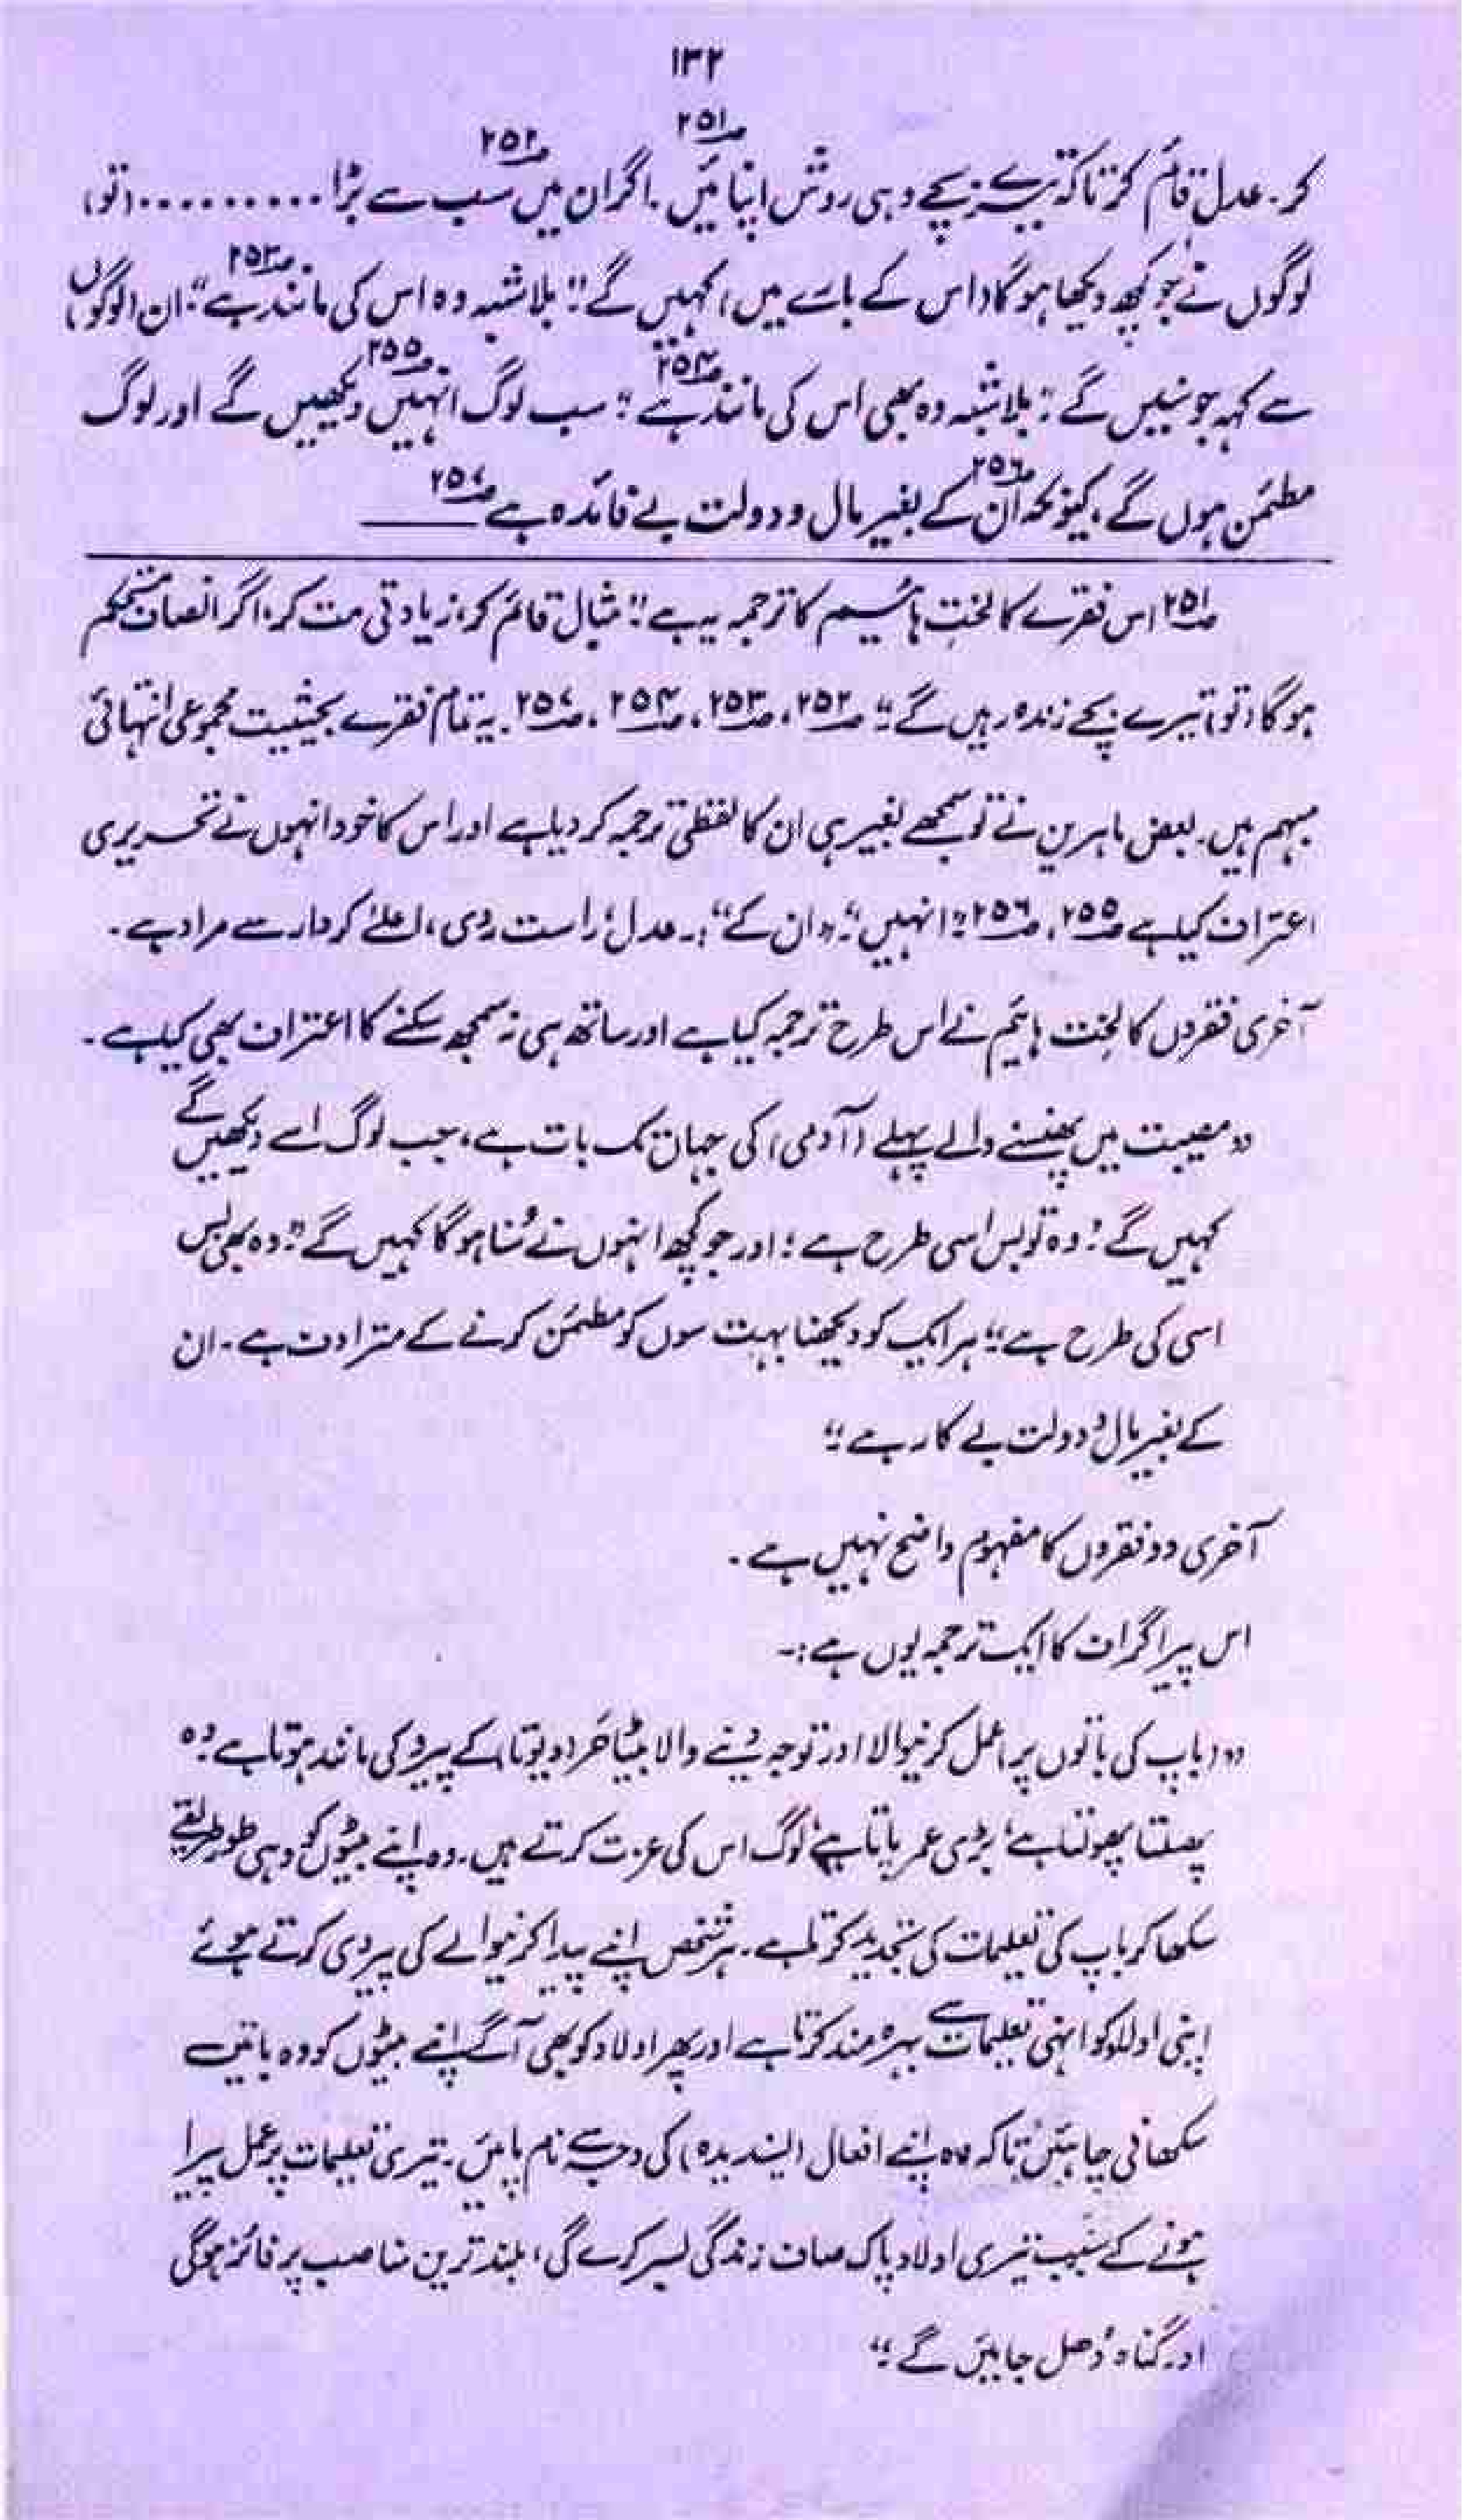 ۱۳۲
کر۔ عدل قائم کر تاکہ تیرے بچے وہی روش اپنائیں ۲۵۱؎۔ اگر ان میں سب ۲۵۲؎ سے بڑا .......... (تو)
لوگوں نے جو کچھ دیکھا ہوگا (اس کے بارے میں) کہیں گے "بلا شبہ وہ اس کی مانند ہے ۲۵۳؎" ان (لوگوں)
سے کہہ جو سنیں گے "بلا شبہ وہ بھی اس کی مانند ہے ۲۵۴؎" سب لوگ انہیں ۲۵۵؎ دیکھیں گے اور لوگ
مطمئن ہوں گے، کیونکہ ان ۲۵۶؎ کے بغیر مال و دولت بے فائدہ ہے ۲۵۷؎
۲۵۱؎ اس فقرے کا لخت ہائیم کا ترجمہ یہ ہے "مثال قائم کر، زیادتی مت کر، اگر انصاف مستحکم
ہوگا (تو) تیرے بچے زندہ رہیں گے" ۲۵۲؎، ۲۵۳؎، ۲۵۴؎، ۲۵۷؎۔ یہ تمام فقرے بحیثیت مجموعی انتہائی
مبہم ہیں۔ بعض ماہرین نے تو سمجھے بغیر ہی ان کا لفظی ترجمہ کر دیا ہے اور اس کا خود انہوں نے تحریری
اعتراف کیا ہے ۲۵۵؎، ۲۵۶؎ "انہیں" "ان کے":۔ عدل، راست روی، اعلےٰ کردار سے مراد ہے۔
آخری فقروں کا لخت ہائیم نے اس طرح ترجمہ کیا ہے اور ساتھ ہی نہ سمجھ سکنے کا اعتراف بھی کیا ہے۔
"مصیبت میں پھنسنے والے پہلے (آدمی) کی جہاں تک بات ہے، جب لوگ اسے دیکھیں گے
کہیں گے "وہ تو بس اسی طرح ہے؛ اور جو کچھ انہوں نے سُنا ہوگا کہیں گے "وہ بھی بس
اسی کی طرح ہے" ہر ایک کو دیکھنا بہت سوں کو مطمئن کرنے کے مترادف ہے۔ ان
کے بغیر مال و دولت بے کار ہے"
آخری دو فقروں کا مفہوم واضح نہیں ہے۔
اس پیراگراف کا ایک ترجمہ یوں ہے:۔
"(باپ کی باتوں پر) عمل کرنیوالا اور توجہ دینے والا بیٹا حَر (دیوتا) کے پیرو کی مانند ہوتا ہے، وہ
پھلتا پھولتا ہے، بڑی عمر پاتا ہے، لوگ اس کی عزت کرتے ہیں۔ وہ اپنے بیٹوں کو وہی طور طریقے
سکھا کر باپ کی تعلیمات کی تجدید کرتا ہے۔ ہر شخص اپنے پیدا کرنیوالے کی پیروی کرتے ہوئے
اپنی اولاد کو انہی تعلیمات سے بہرہ مند کرتا ہے اور پھر اولاد کو بھی آگے اپنے بیٹوں کو وہ باتیں
سکھانی چاہئیں تاکہ وہ اپنے افعال (پسندیدہ) کی وجہ سے نام پائیں۔ تیری تعلیمات پر عمل پیرا
ہونے کے سبب تیری اولاد پاک صاف زندگی بسر کرے گی، بلند ترین مناصب پر فائز ہوگی
اور گناہ دُھل جائیں گے"